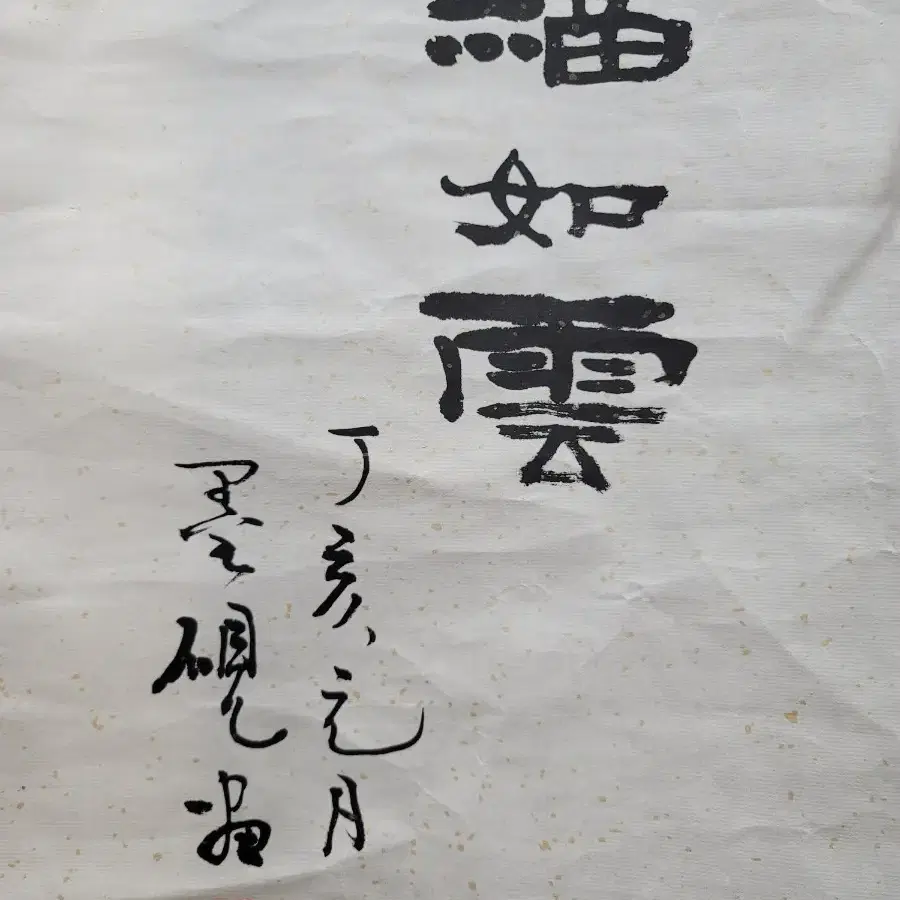 如雲
丁亥元月
墨硯